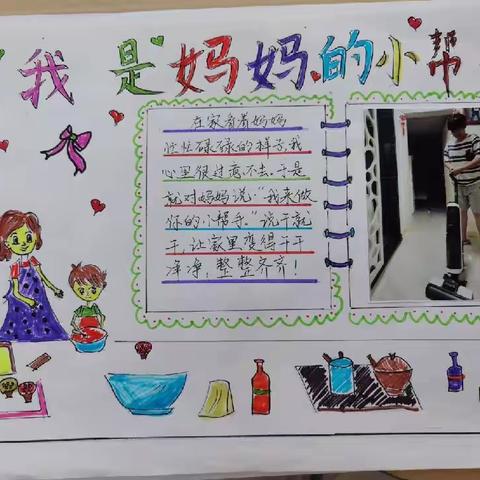 我是妈妈的小帮
在家看着妈妈
忙忙碌碌的样子,我
心里很过意不去。于是
就对妈妈说:“我来做
你的小帮手。”说干就
干,让家里变得干干
净净,整整齐齐!